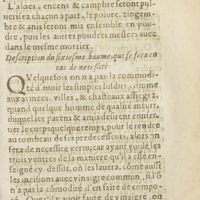 L'aloes, encens & camphre seront pul-
verisez chacun à part, le poivre, gingem-
bre & anis seront mis ensemble en pou-
dre, puis les autres poudres meslees avec
dans le mesme mortier.
Description du sixiesme baume, qui se fera en
cas de necessité
QVelquefois on n'a pas la commodi-
té d'avoir les simples susdits, comme
aux armees, villes, & chasteaux assiegez,
quand quelque homme de qualité meurt,
duquel les parens & amis desirent conser-
ver le corps quelque temps, pour le rendre
au tombeau de ses predecesseurs. Toute
necessité vous ayant
seigné cy-dessus, on les lavera, comme aussi
les incisions avec vinaigre commun, s'il
n'a pas la cōmodité d'en faire de compo-
faute de vinaigre, on